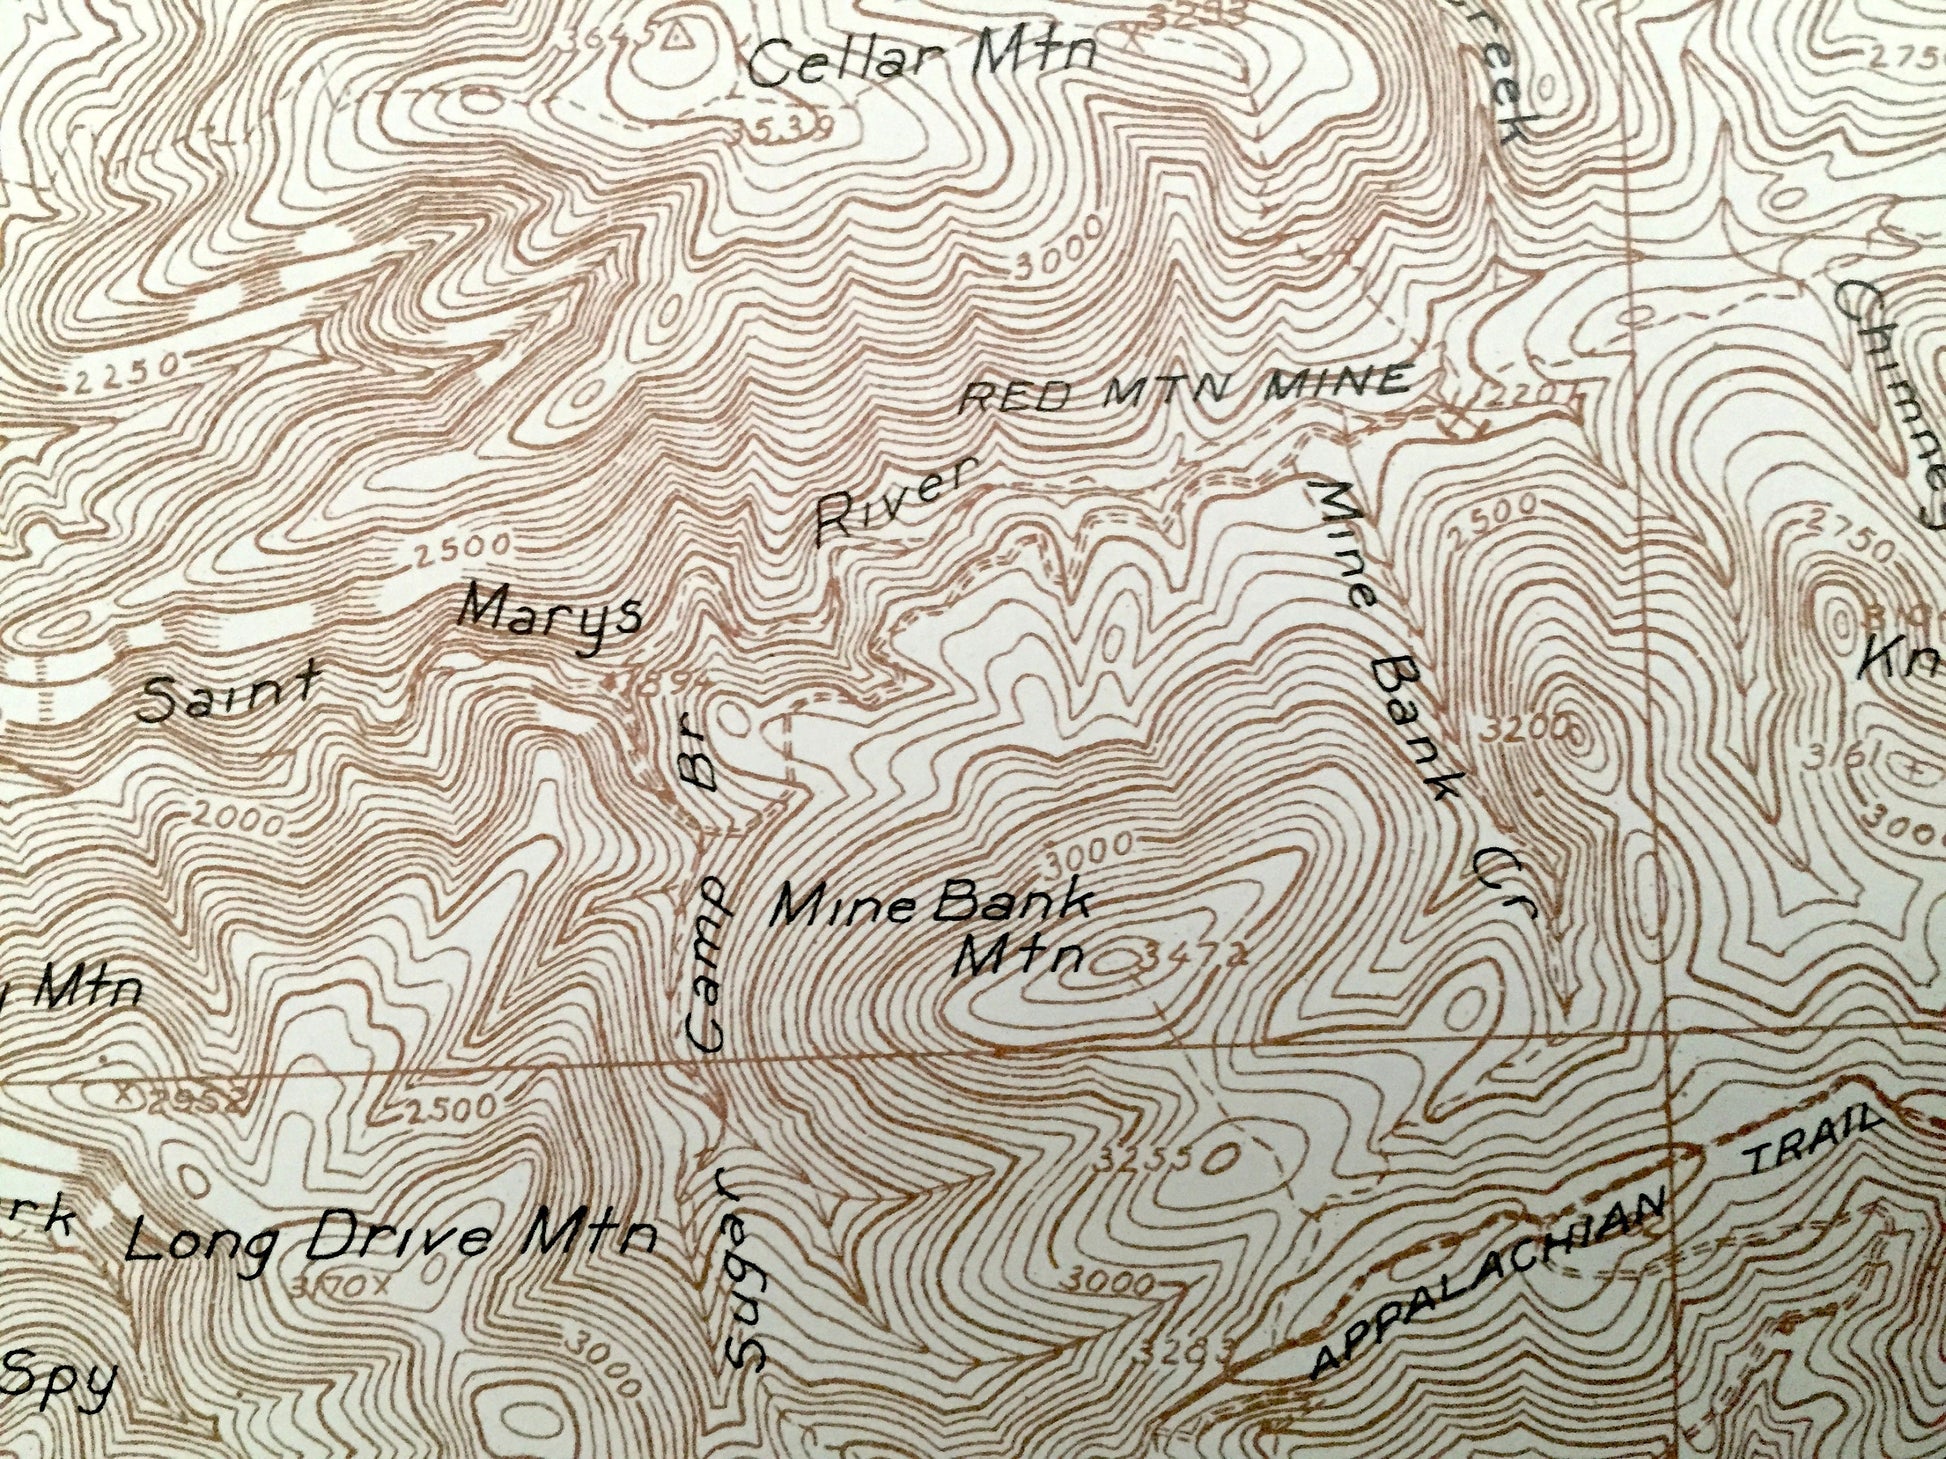 3645
Cellar Mtn
3293
3539
Creek
2750
3000
2250
RED MTN MINE
2201
Chimney
River
2500
Mine Bank Cr
2500
2750
Saint Marys
1894
Kn
3200
3161
Camp Br
2000
3000
3000
Mine Bank
Mtn
3472
Mtn
2952
2500
3255
APPALACHIAN TRAIL
rk
Long Drive Mtn
Sugar
3170
3000
3000
3283
Spy